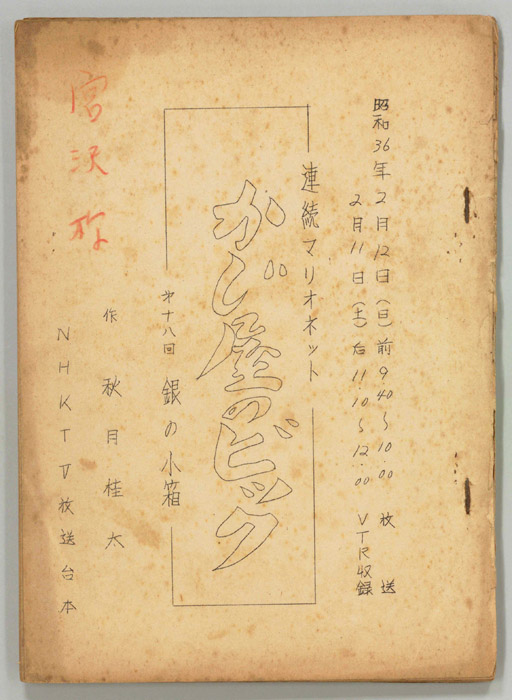 昭和36年2月12日(日)前9.40~10.00 放送
2月11日(土)后11.10~12.00 VTR収録
連続マリオネット
かじ屋のビック
才十八回 銀の小箱
作 秋月桂太
NHKTV放送台本
宮沢